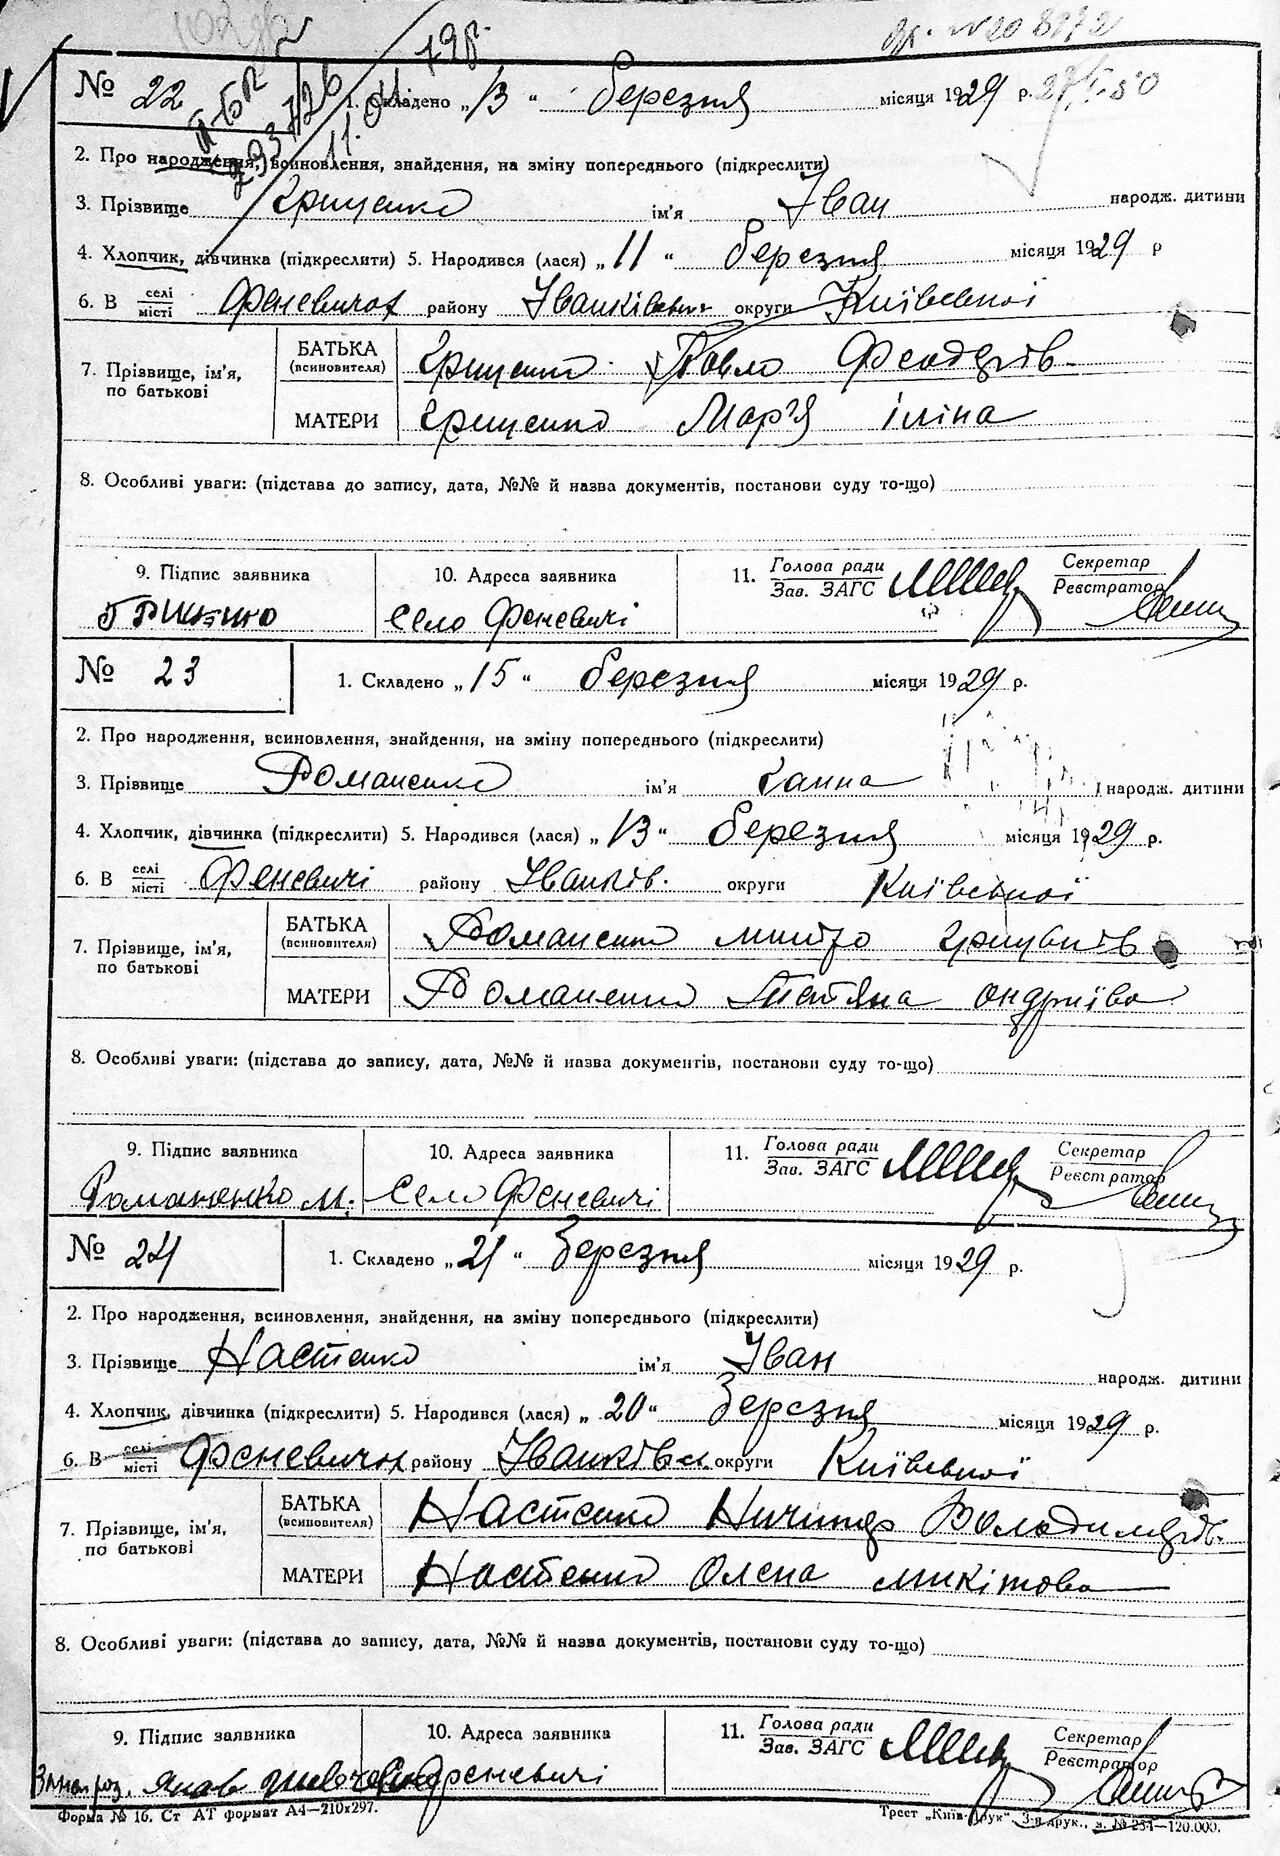 № 22 1. Складено „ 13 “ березня місяця 1929 р.
2. Про народження, всиновлення, знайдення, на зміну попереднього (підкреслити)
3. Прізвище Грищенко ім'я Іван народж. дитини
4. Хлопчик, дівчинка (підкреслити) 5. Народився (лася) „ 11 “ березня місяця 1929 р
6. В селі місті Феневичах району Іванківськ округи Київської
7. Прізвище, ім'я, по батькові БАТЬКА (всиновителя) Грищенко Павло Феодорів
МАТЕРИ Грищенко Мар'я Іліна
8. Особливі уваги: (підстава до запису, дата, №№ й назва документів, постанови суду то-що)
9. Підпис заявника 10. Адреса заявника 11. Голова ради Зав. ЗАГС Секретар Реєстратор
село Феневичі
№ 23 1. Складено „ 15 “ березня місяця 1929 р.
2. Про народження, всиновлення, знайдення, на зміну попереднього (підкреслити)
3. Прізвище Романенко ім'я Ганна народж. дитини
4. Хлопчик, дівчинка (підкреслити) 5. Народився (лася) „ 13 “ березня місяця 1929 р.
6. В селі місті Феневичі району Іванків. округи Київської
7. Прізвище, ім'я, по батькові БАТЬКА (всиновителя) Романенко Митро
МАТЕРИ Романенко Тетяна Ондріїва
8. Особливі уваги: (підстава до запису, дата, №№ й назва документів, постанови суду то-що)
9. Підпис заявника 10. Адреса заявника 11. Голова ради Зав. ЗАГС Секретар Реєстратор
Романенко М. село Феневичі
№ 24 1. Складено „ 21 “ березня місяця 1929 р.
2. Про народження, всиновлення, знайдення, на зміну попереднього (підкреслити)
3. Прізвище Настенко ім'я Іван народж. дитини
4. Хлопчик, дівчинка (підкреслити) 5. Народився (лася) „ 20 “ березня місяця 1929 р.
6. В селі місті Феневичах району Іванківськ округи Київської
7. Прізвище, ім'я, по батькові БАТЬКА (всиновителя) Настенко Ничипор Володимирів.
МАТЕРИ Настенко Олена Микітова
8. Особливі уваги: (підстава до запису, дата, №№ й назва документів, постанови суду то-що)
9. Підпис заявника 10. Адреса заявника 11. Голова ради Зав. ЗАГС Секретар Реєстратор
Феневичі
Форма № 16. Ст АТ формат А4—210x297. Трест „Київ-Друк“. 3-я друк., з. № 254—120.000.